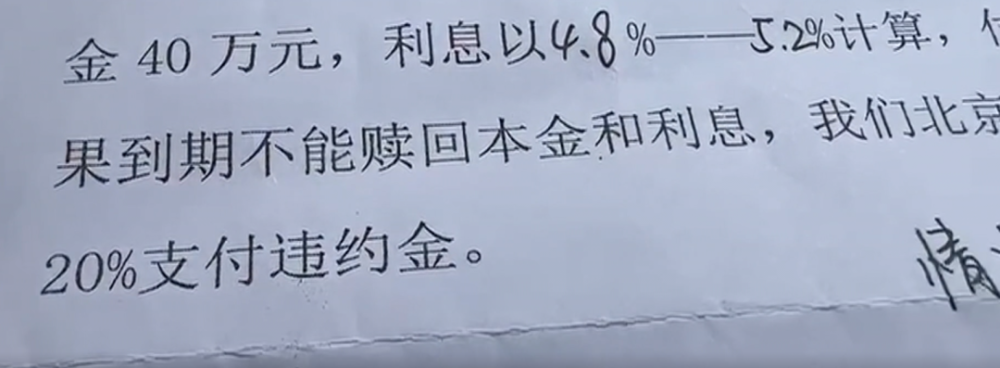 金 40 万元，利息以4.8%——5.2%计算，
果到期不能赎回本金和利息，我们北京
20%支付违约金。
情